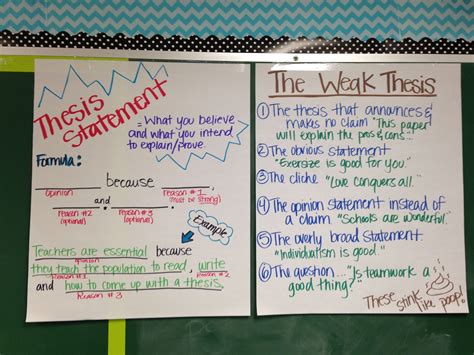 Thesis
Statement
= What you believe
and what you intend
to explain/prove.
Formula:
__________ because __________.
opinion
reason #1
(must be strong)
__________ and __________.
reason #2
(optional)
reason #3
(optional)
Example
Teachers are essential because
opinion
they teach the population to read, write
reason #1
reason #2
and how to come up with a thesis.
Reason #3
The Weak Thesis
① The thesis that announces &
makes no claim "This paper
will explain the pros & cons..."
② The obvious statement
"Exersize is good for you."
③ The cliche "Love conquers all."
④ The opinion statement instead of
a claim. "Schools are wonderful."
⑤ The overly broad statement
"Individualism is good."
⑥ The question... "Is teamwork a
good thing?"
These stink
like poop!